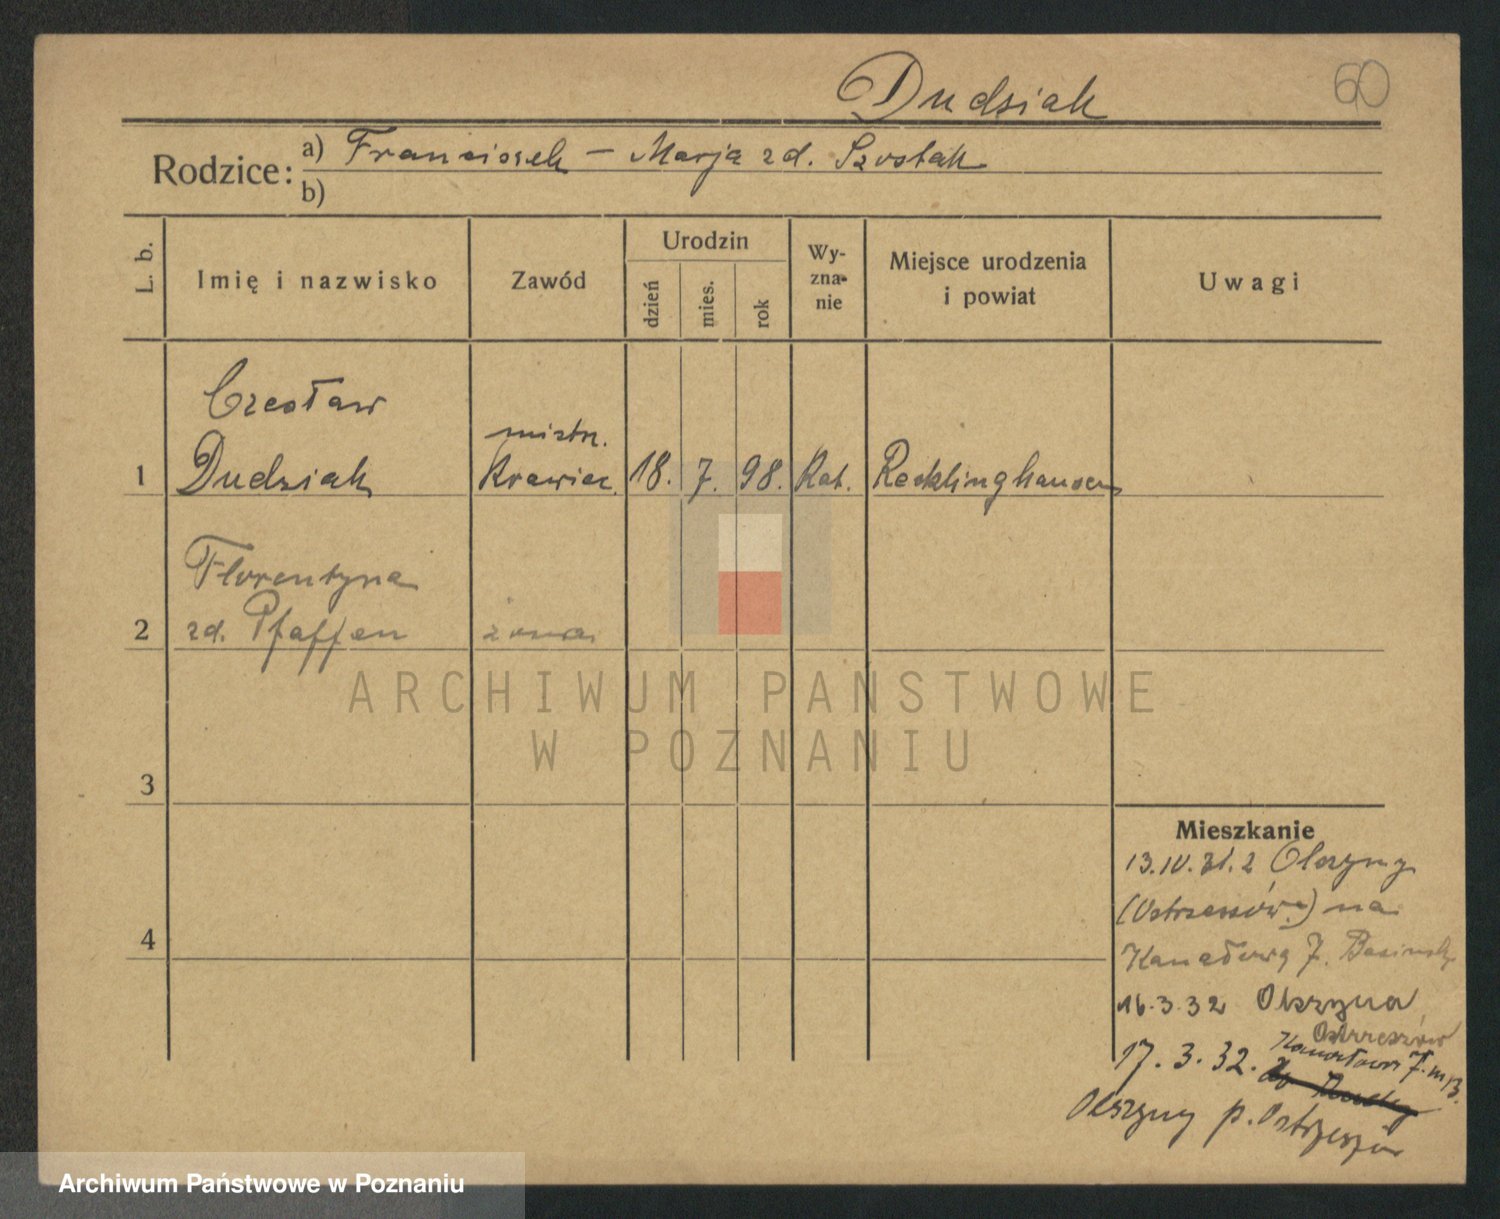 Dudziak
60
Rodzice:
a) Franciszek – Marja zd. Szostak
b)
L. b.
Imię i nazwisko
Zawód
Urodzin
dzień
mies.
rok
Wy-
zna-
nie
Miejsce urodzenia
i powiat
Uwagi
Czesław
mistrz.
1 Dudziak Krawiec. 18. 7. 98. Kat. Recklinghausen
Florentyna
2 zd. Pfaffen żona
3
4
ARCHIWUM PAŃSTWOWE
W POZNANIU
Mieszkanie
13.IV.31. z Olszyny
(Ostrzeszów) na
Kanałową 7.
16.3.32 Olszyna
Ostrzeszów
17.3.32. Kanałowa 7. m
Olszyny p. Ostrzeszów
Archiwum Państwowe w Poznaniu